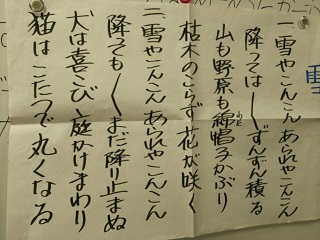 雪
一、雪やこんこんあられやこんこん
降っては〱ずんずん積る
山も野原も綿帽子かぶり
枯木のこらず花が咲く
二、雪やこんこんあられやこんこん
降っても〱まだ降り止まぬ
犬は喜こび庭かけまわり
猫はこたつで丸くなる